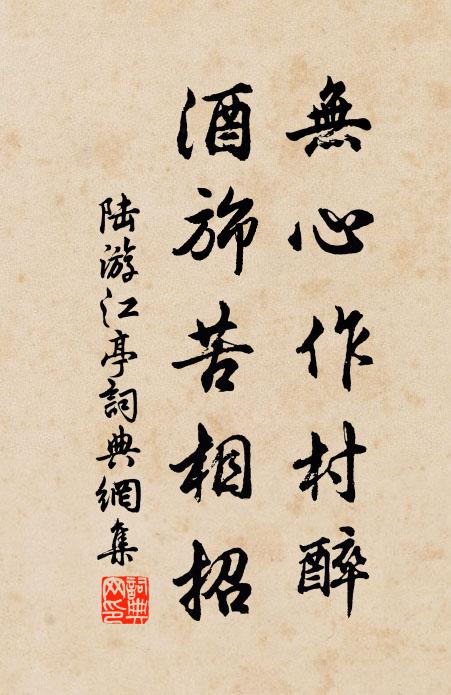 無心作村醉
酒旆苦相招
陆游江亭詞典網集
詞典网印